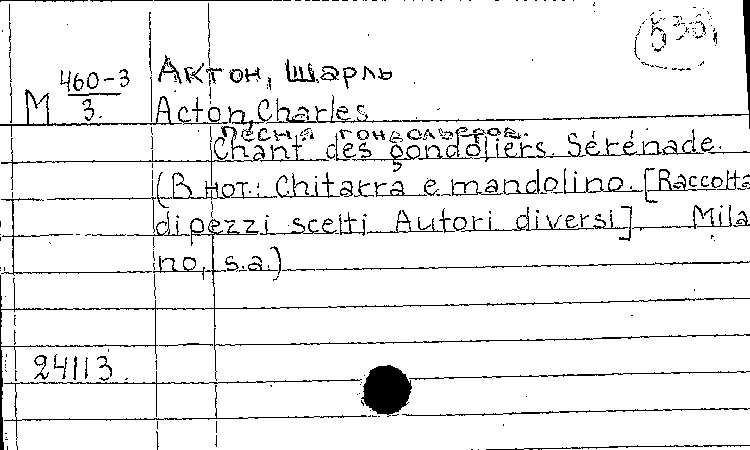 533
Актон, Шарль
М 460-3
3.
Acton, Charles
Песня гондольеров.
Chant des gondoliers. Sérénade.
(В нот.: Chitarra e mandolino. [Raccolta
di pezzi scelti Autori diversi]. Mila
no, s.a.)
24113.